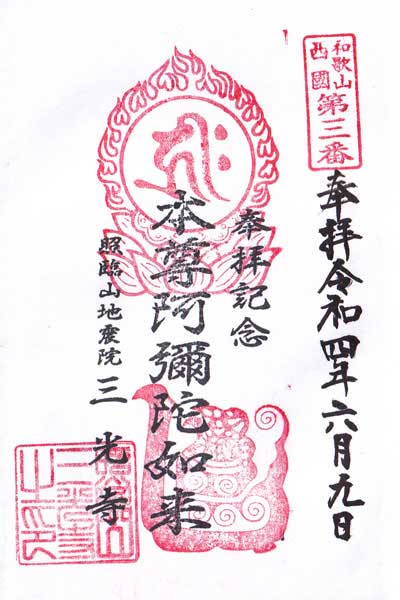 和歌山
西國
第三番
奉拝令和四年六月九日
奉拝記念
本尊阿彌陀如来
照臨山地震院
三光寺